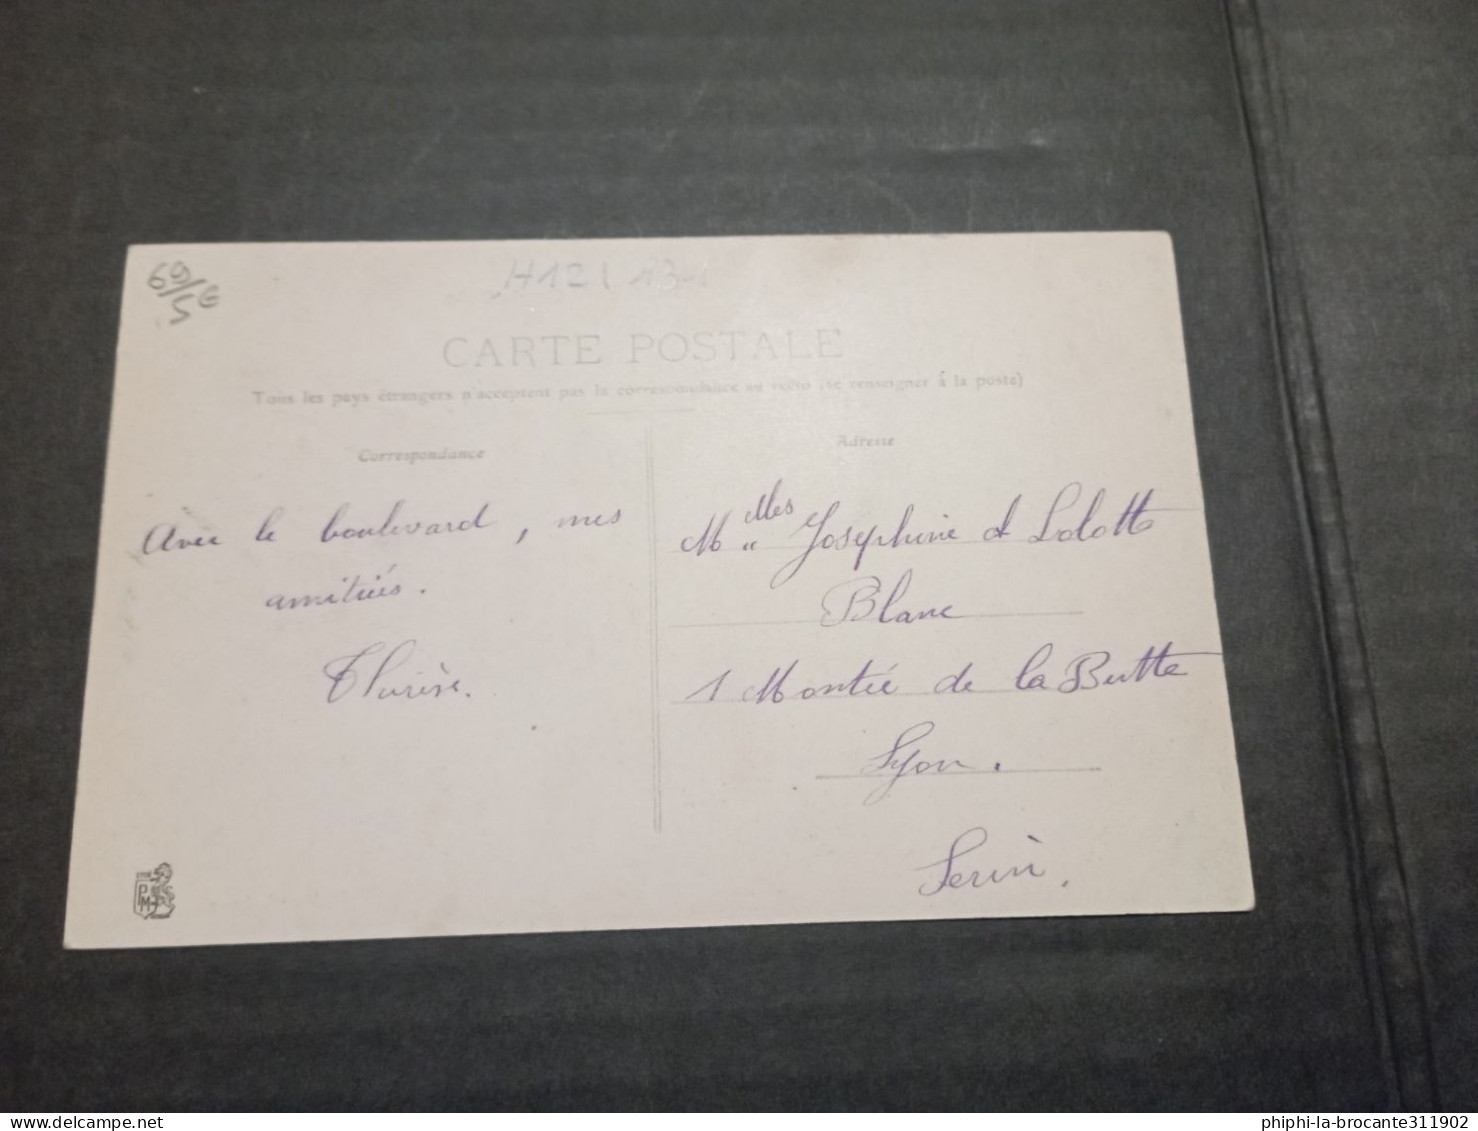 69/5 6
H12 13
CARTE POSTALE
Tous les pays étrangers n'acceptent pas la correspondance au recto (se renseigner à la poste)
Correspondance
Avec le boulevard, mes
amitiés.
Adresse
M elles Joséphine et Lolotte
Blanc
1 Montée de la Butte
Lyon.
Serin.
PM
phiphi-la-brocante311902